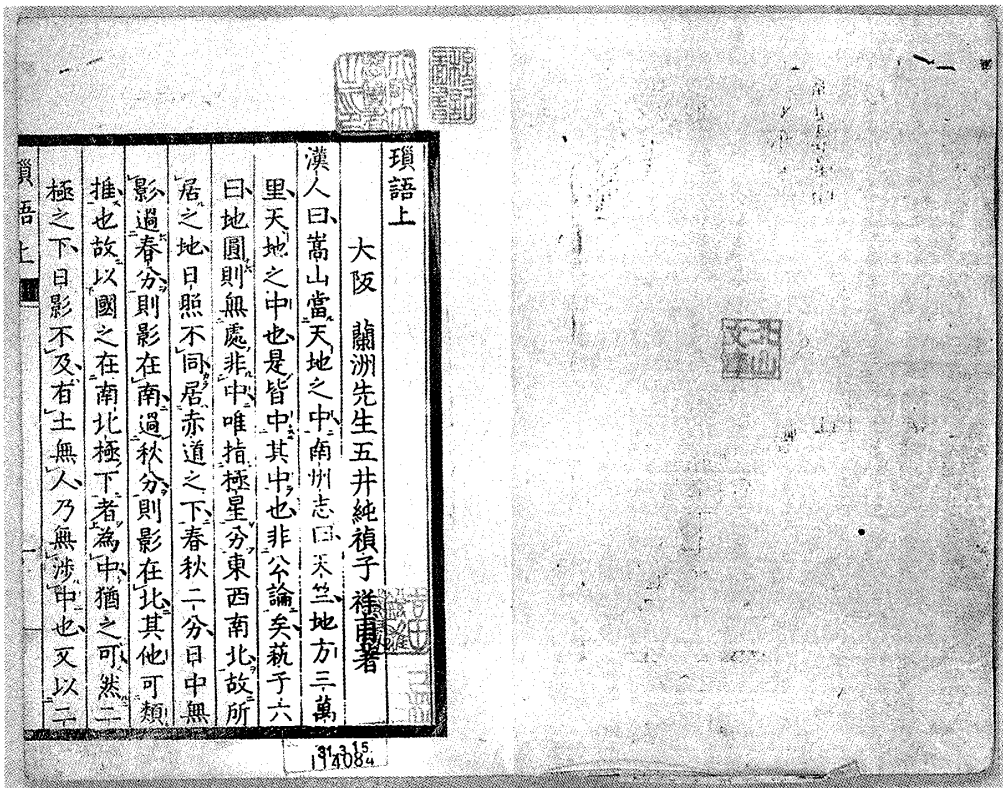 瑣語上
大阪 蘭洲先生五井純禎子祥甫著
漢人曰嵩山當天地之中南州志曰天竺地方三萬
里天地之中也是皆中其中也非公論矣蓺子六
曰地圓則無處非中唯指極星分東西南北故所
居之地日照不同居赤道之下春秋二分日中無
影過春分則影在南過秋分則影在北其他可類
推也故以國之在南北極下者為中猶之可然二
極之下日影不及有土無人乃無涉中也又以二
瑣語上
北山文庫
31.3.15.
114084